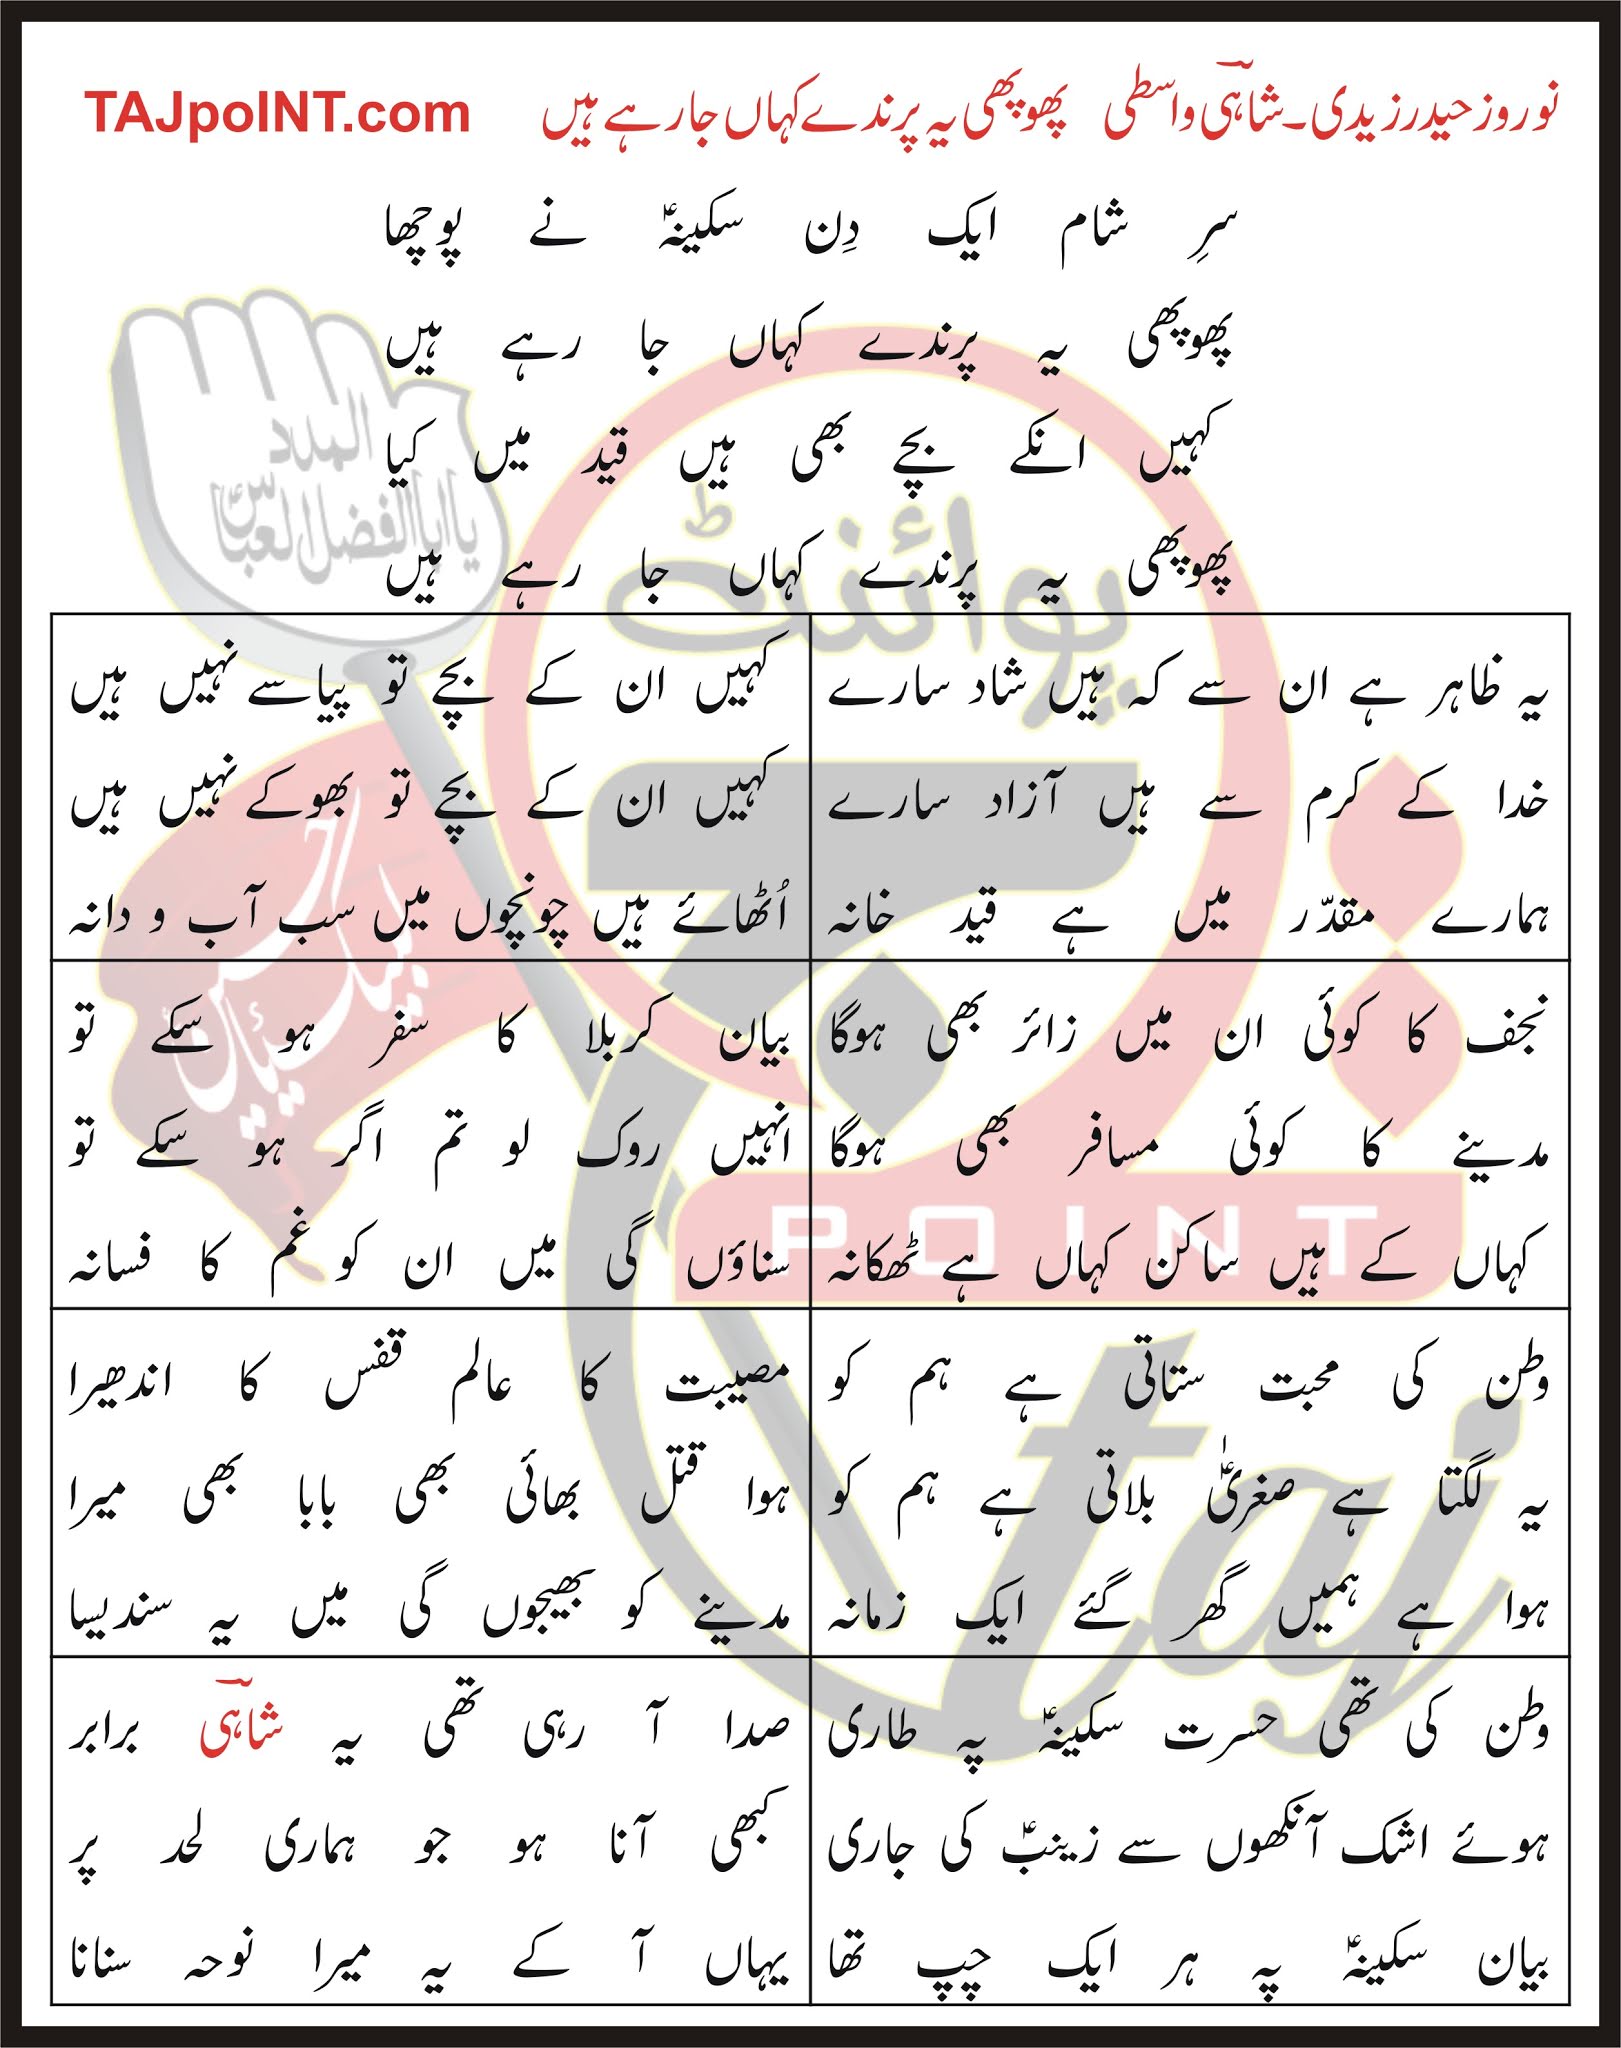 نوروز حیدر زیدی۔شاہیؔ واسطی پھوپھی یہ پرندے کہاں جا رہے ہیں TAJpoINT.com
سرِ شام ایک دِن سکینہؑ نے پوچھا
پھوپھی یہ پرندے کہاں جا رہے ہیں
کہیں انکے بچے بھی ہیں قید میں کیا
پھوپھی یہ پرندے کہاں جا رہے ہیں
یہ ظاہر ہے ان سے کہ ہیں شاد سارے
خدا کے کرم سے ہیں آزاد سارے
ہمارے مقدّر میں ہے قید خانہ
کہیں ان کے بچے تو پیاسے نہیں ہیں
کہیں ان کے بچے تو بھوکے نہیں ہیں
اُٹھائے ہیں چونچوں میں سب آب و دانہ
نجف کا کوئی ان میں زائر بھی ہوگا
مدینے کا کوئی مسافر بھی ہوگا
کہاں کے ہیں ساکن کہاں ہے ٹھکانہ
بیان کربلا کا سفر ہو سکے تو
انہیں روک لو تم اگر ہو سکے تو
سناؤں گی میں ان کو غم کا فسانہ
وطن کی محبت ستاتی ہے ہم کو
یہ لگتا ہے صغریٰؑ بلاتی ہے ہم کو
ہوا ہے ہمیں گھر گئے ایک زمانہ
مصیبت کا عالم قفس کا اندھیرا
ہوا قتل بھائی بھی بابا بھی میرا
مدینے کو بھیجوں گی میں یہ سندیسا
وطن کی تھی حسرت سکینہؑ پہ طاری
ہوئے اشک آنکھوں سے زینبؑ کی جاری
بیان سکینہؑ پہ ہر ایک چپ تھا
صدا آ رہی تھی یہ شاہیؔ برابر
کبھی آنا ہو جو ہماری لحد پر
یہاں آ کے یہ میرا نوحہ سنانا
المدد
یا ابا الفضل العباسؑ
لبیک یا حسینؑ
پوائنٹ
تاج
POINT
taj